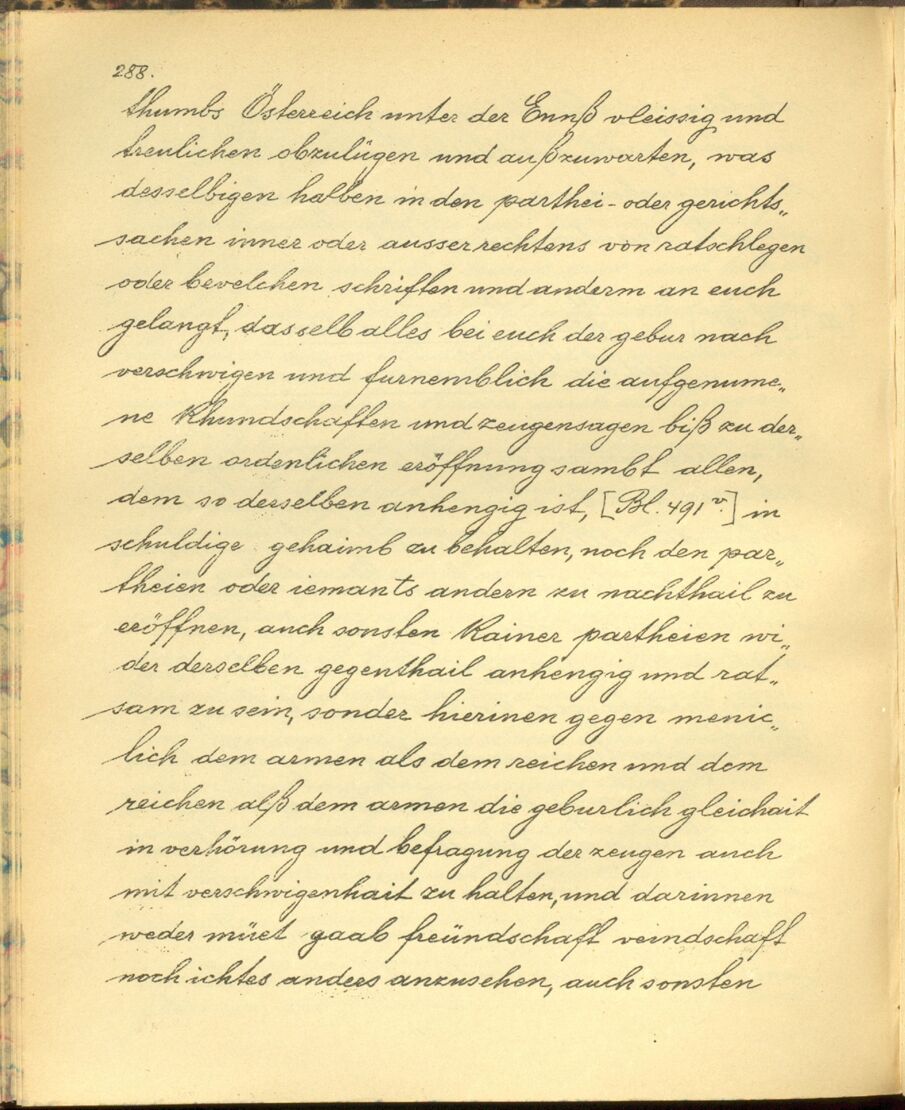 288.
thumbs Österreich unter der Ennß vleissig und
treulichen obzulügen und außzuwarten, was
desselbigen halben in den parthei- oder gerichts„
sachen inner oder ausser rechtens von ratschlegen
oder bevelchen schriften und anderm an euch
gelangt, dasselb alles bei euch der gebur nach
verschwigen und furnemblich die aufgenume„
ne Khundschaften und zeugensagen biß zu der„
selben ordenlichen eröffnung sambt allen,
dem so derselben anhengig ist, [Bl. 491 v.] in
schuldige gehaimb zu behalten, noch den par„
theien oder iemants andern zu nachthail zu
eröffnen, auch sonsten Kainer partheien wi„
der derselben gegenthail anhengig und rat„
sam zu sein, sonder hierinen gegen menic„
lich dem armen als dem reichen und dem
reichen alß dem armen die geburlich gleichait
in verhörung und befragung der zeugen auch
mit verschwigenhait zu halten, und darinnen
weder müet gaab freündschaft veindschaft
noch ichtes anders anzusehen, auch sonsten